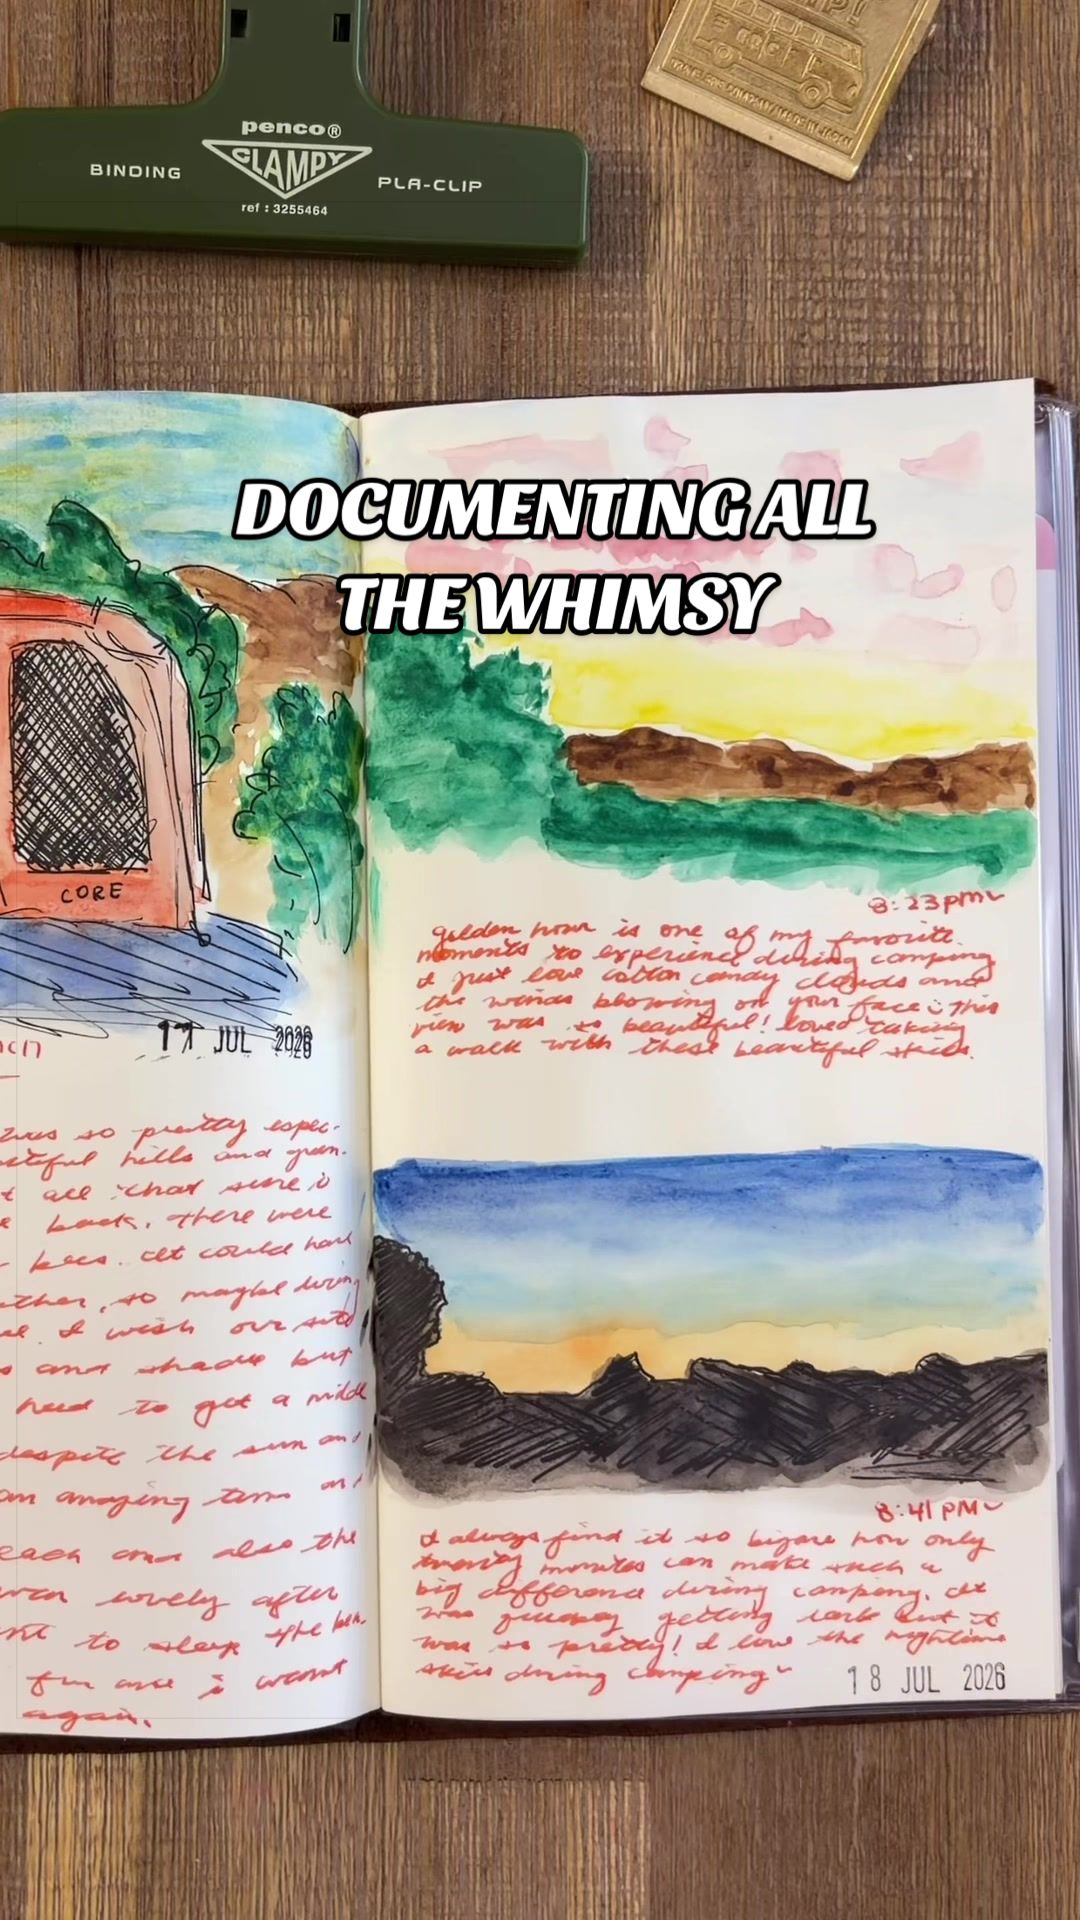 penco®
CLAMPY
BINDING
PLA-CLIP
ref : 3255464
TRAVELER'S COMPANY MADE IN JAPAN
DOCUMENTING ALL
THE WHIMSY
CORE
17 JUL 2026
was so pretty espec-
hills and green.
all that sure is
back. there were
bees. it could have
so maybe during
I wish our site
and shade but
need to get a middle
despite the sun and
an amazing time and
each and also the
lovely after
to sleep the
fun and i want
again.
8:23pm~
golden hour is one of my favorite
moments to experience during camping
I just love cotton candy clouds and
the winds blowing on your face :) This
view was so beautiful! loved taking
a walk with these beautiful skies.
8:41 PM~
I always find it so bizare how only
twenty minutes can make such a
big difference during camping. It
was getting dark but it
was so pretty! I love the nightime
skies during camping~
18 JUL 2026